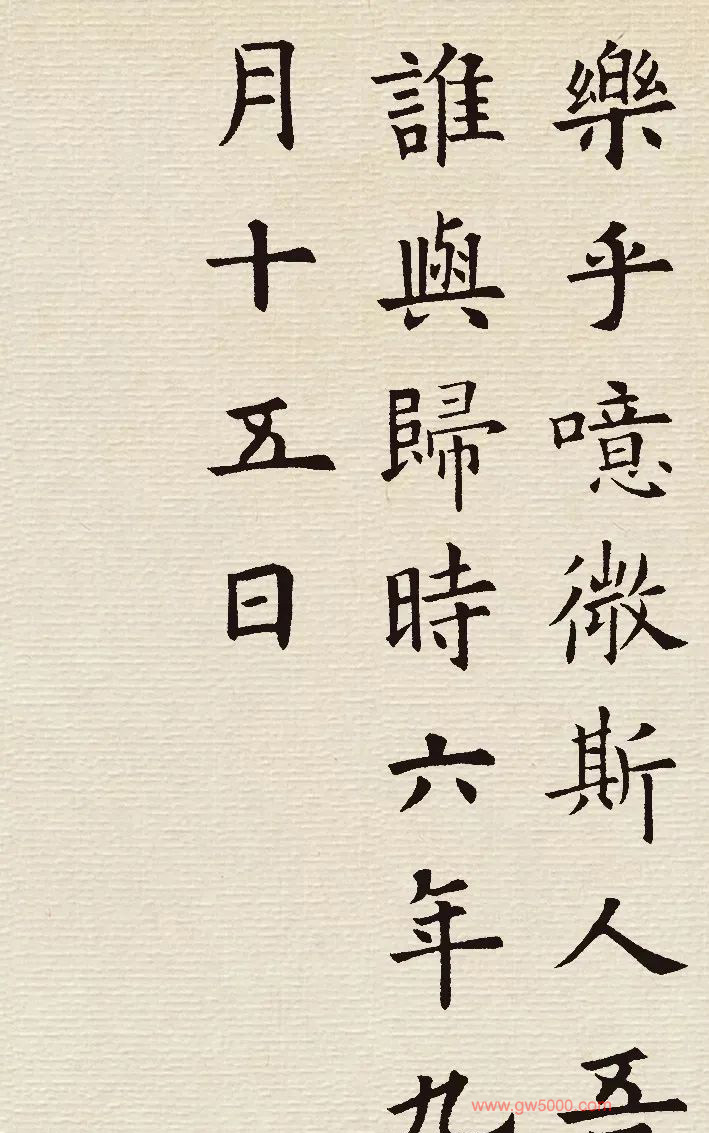 樂乎噫微斯人吾
誰與歸時六年九
月十五日
www.gw5000.com